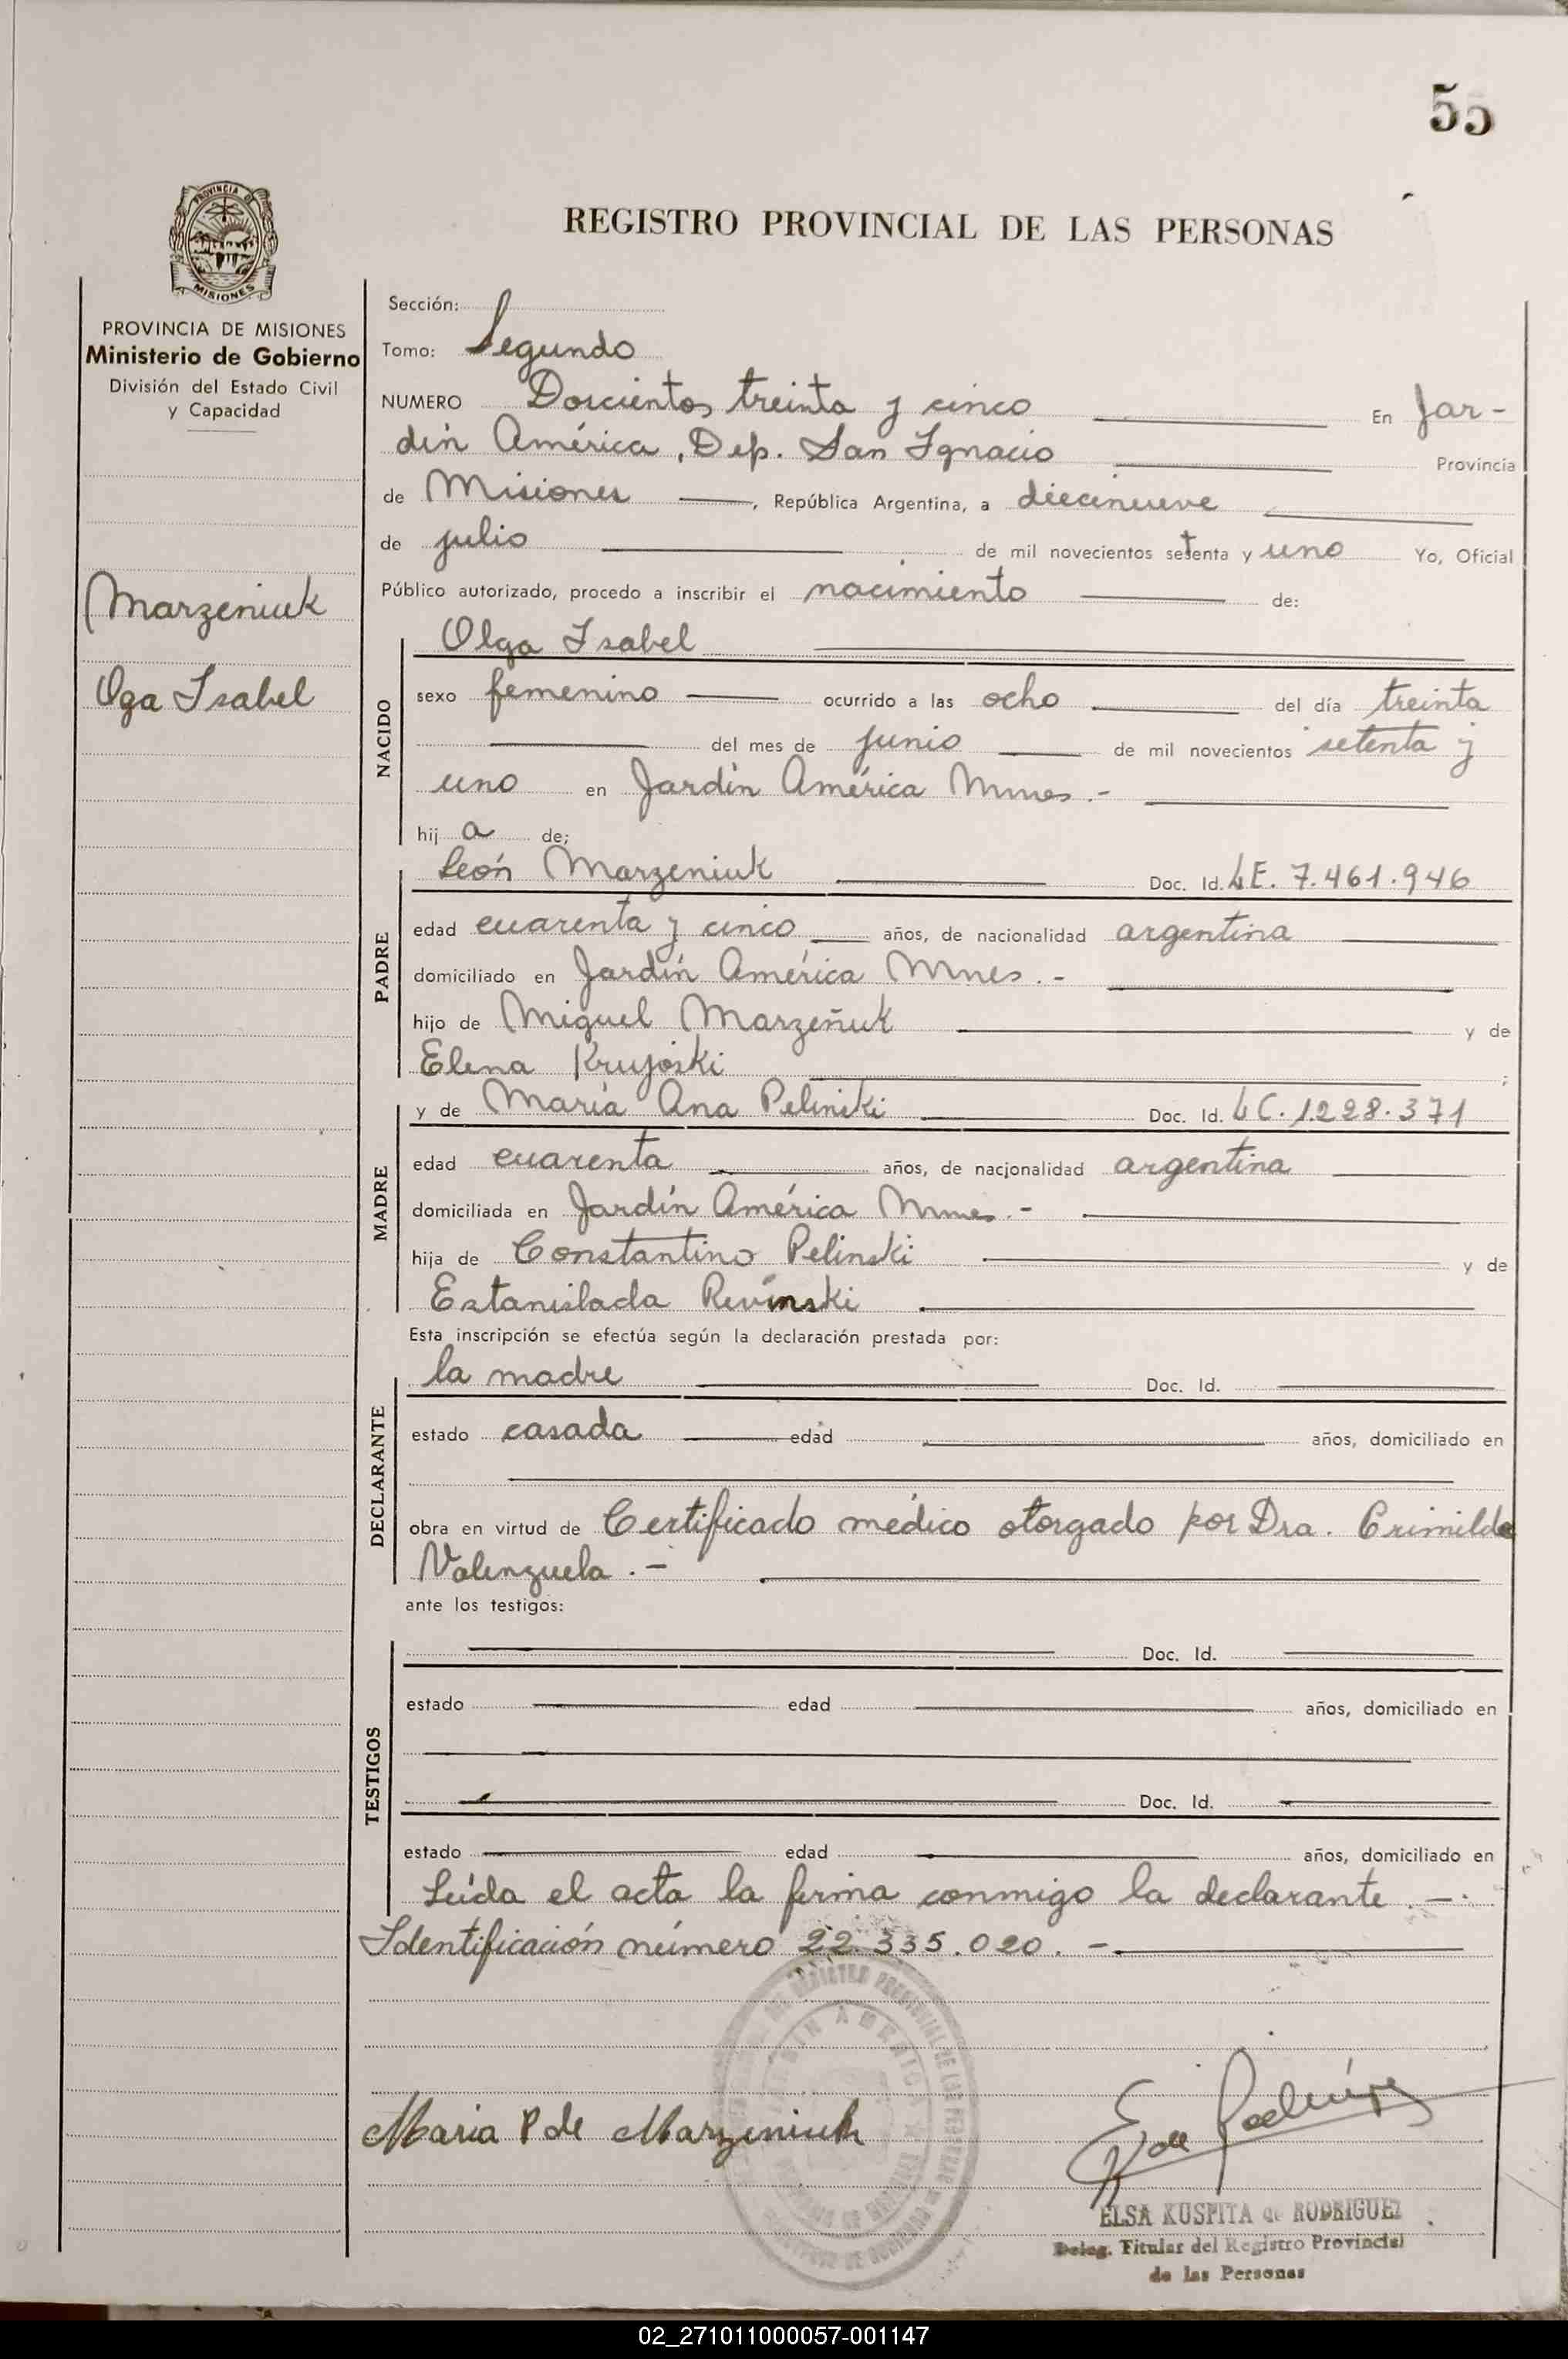 55
REGISTRO PROVINCIAL DE LAS PERSONAS
PROVINCIA DE MISIONES
PROVINCIA DE MISIONES
Ministerio de Gobierno
División del Estado Civil
y Capacidad
Marzeniuk
Oga Isabel
Sección:
Tomo: Segundo
NUMERO Doscientos treinta y cinco En Jar-
dín América, Dep. San Ignacio Provincia
de Misiones, República Argentina, a diecinueve
de julio de mil novecientos setenta y uno Yo, Oficial
Público autorizado, procedo a inscribir el nacimiento de:
NACIDO
Olga Isabel
sexo femenino ocurrido a las ocho del día treinta
del mes de junio de mil novecientos setenta y
uno en Jardín América Mnes.-
hij a de;
PADRE
León Marzeniuk Doc. Id. LE. 7.461.946
edad cuarenta y cinco años, de nacionalidad argentina
domiciliado en Jardín América Mnes.-
hijo de Miguel Marzeñuk y de
Elena Krujoski ;
MADRE
y de María Ana Pelinski Doc. Id. LC. 1.228.371
edad cuarenta años, de nacionalidad argentina
domiciliada en Jardín América Mnes.-
hija de Constantino Pelinski y de
Estanislada Revinski
Esta inscripción se efectúa según la declaración prestada por:
DECLARANTE
la madre Doc. Id.
estado casada edad años, domiciliado en
obra en virtud de Certificado médico otorgado por Dra. Crimilda
Valenzuela.-
ante los testigos:
TESTIGOS
Doc. Id.
estado edad años, domiciliado en
Doc. Id.
estado edad años, domiciliado en
Leída el acta la firma conmigo la declarante.-
Identificación número 22.335.020.-
JARDIN AMERICA
Maria P de Marzeniuk
E K de Rodríguez
ELSA KUSPITA de RODRIGUEZ
Deleg. Titular del Registro Provincial
de las Personas
02_271011000057-001147